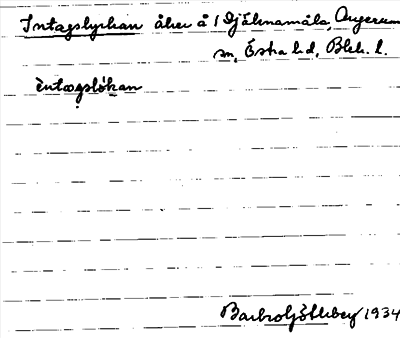 Intagslyckan åker å 1 Djäknamåla, Augerum
sn, Östra hd, Blek. l.
èntagslókan
Barbro Götlberg 1934